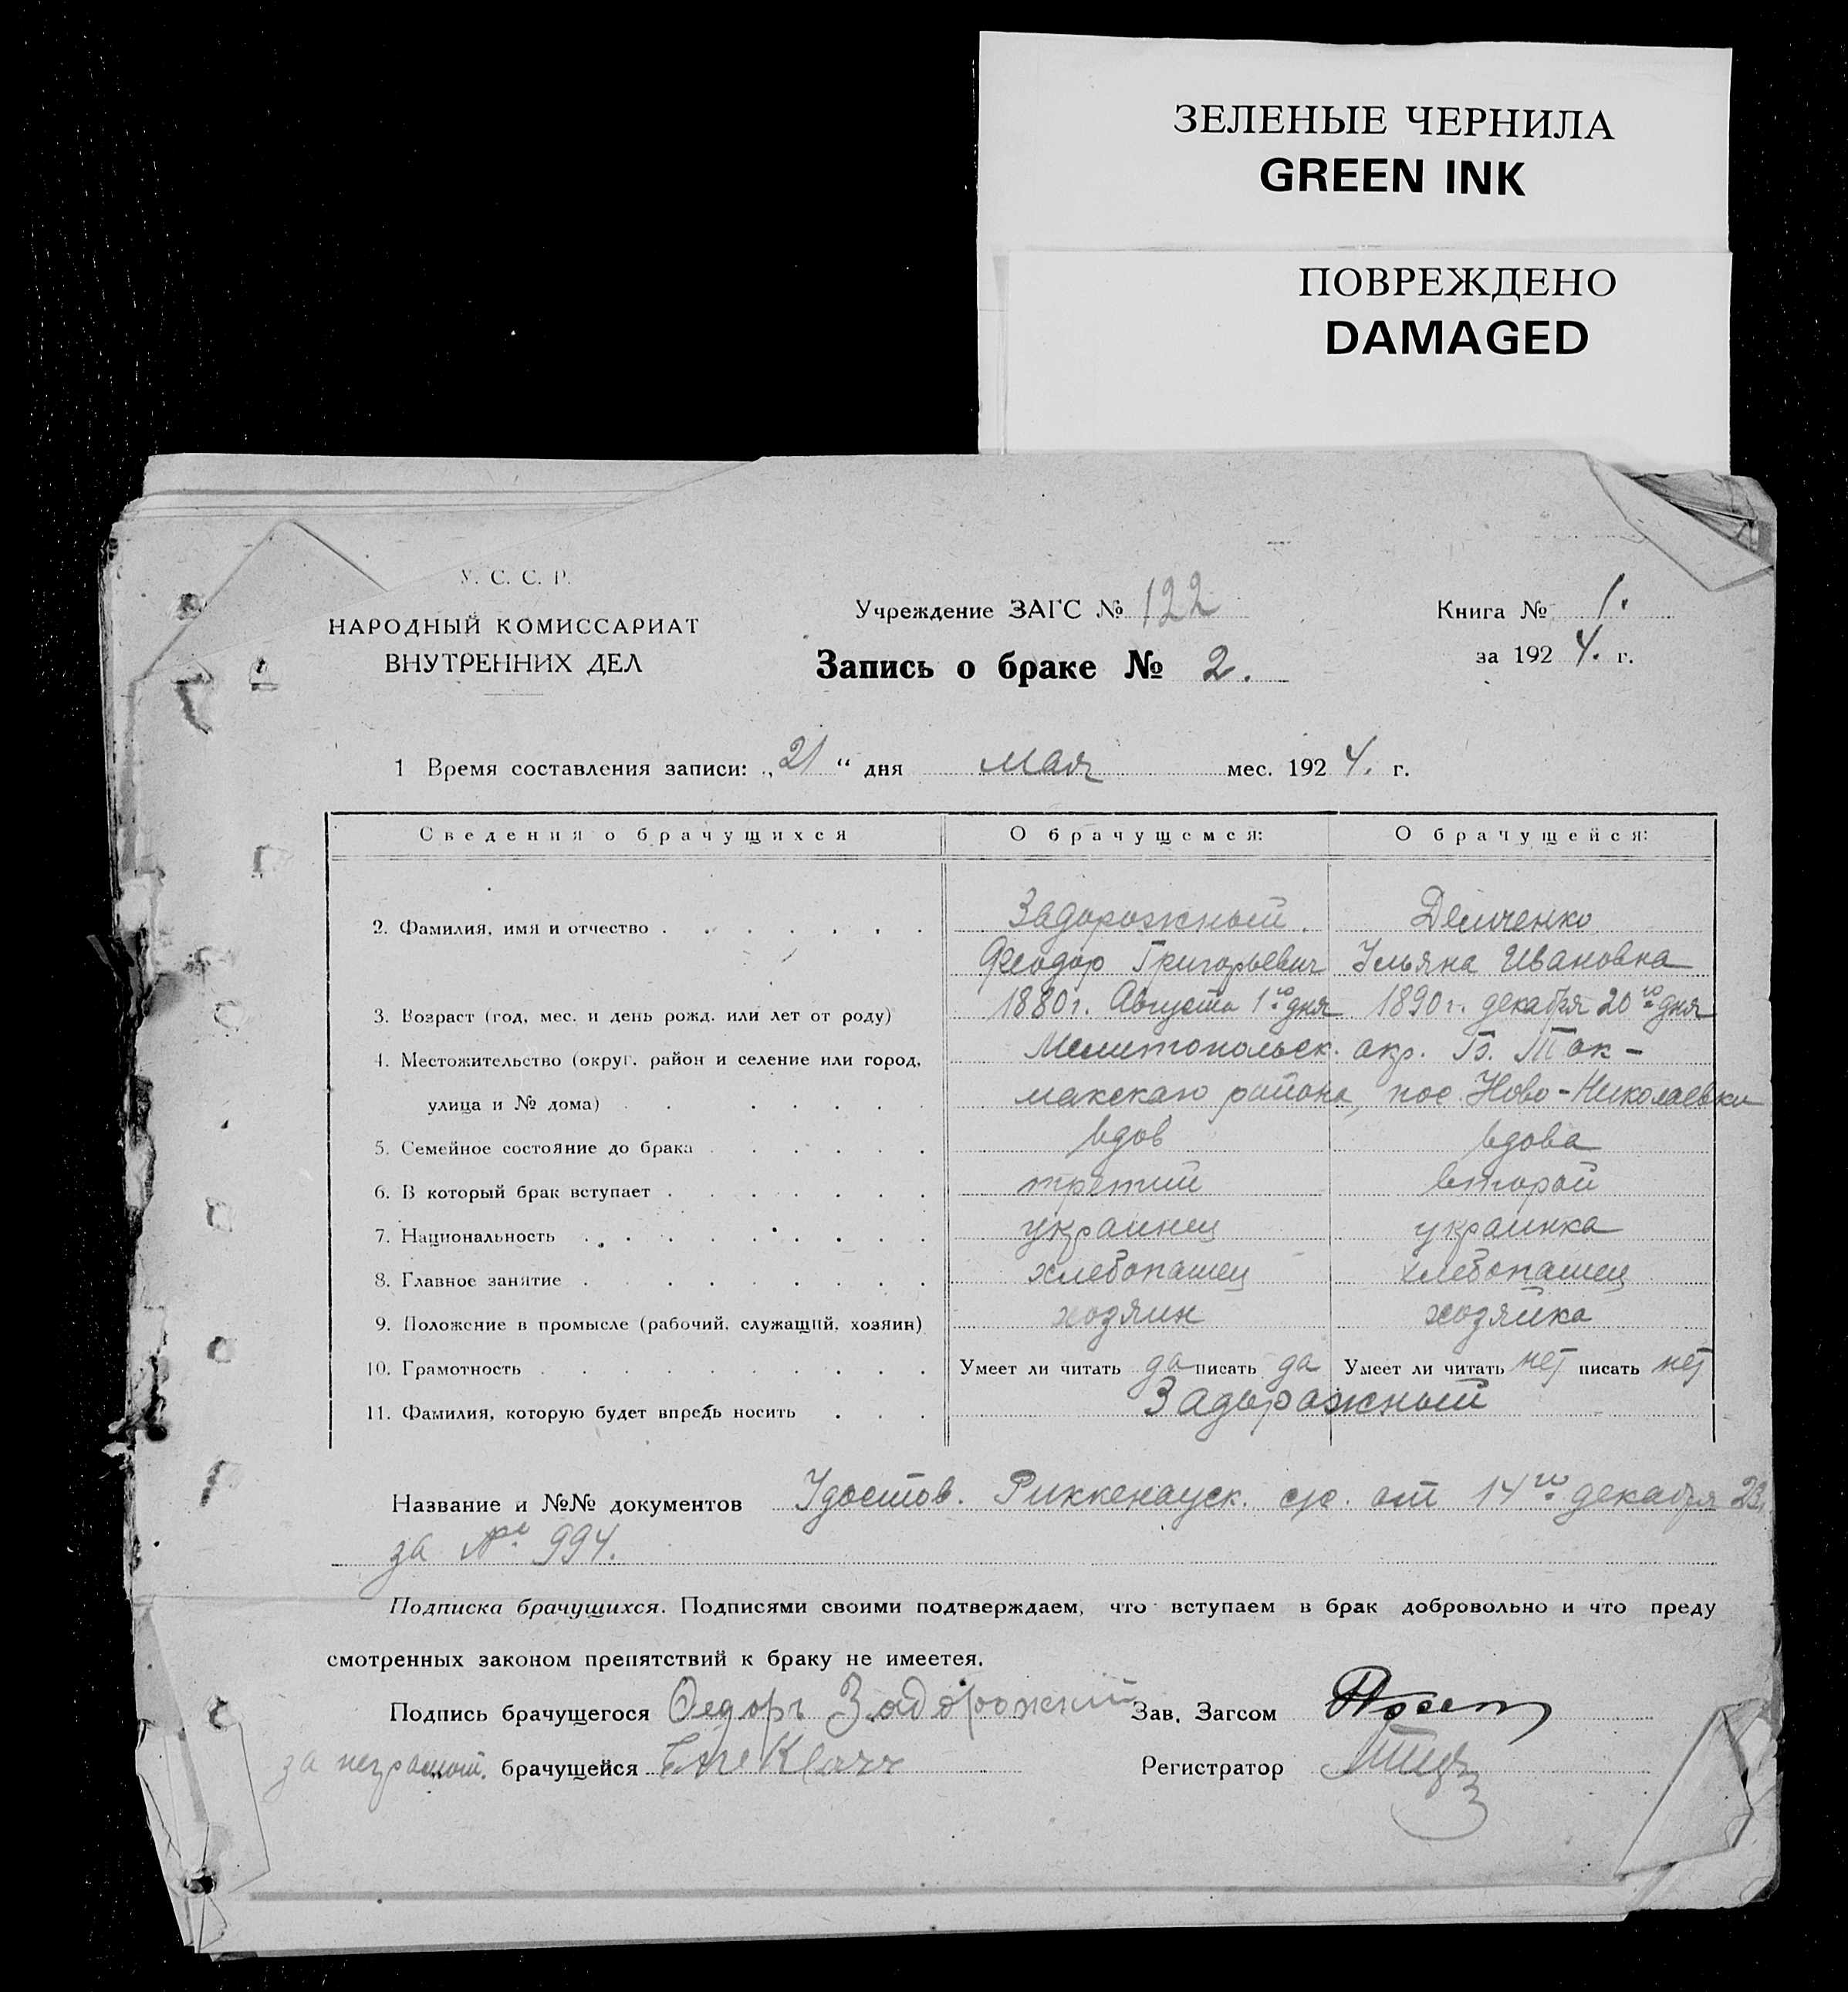 ЗЕЛЕНЫЕ ЧЕРНИЛА
GREEN INK
ПОВРЕЖДЕНО
DAMAGED
У. С. С. Р.
НАРОДНЫЙ КОМИССАРИАТ
ВНУТРЕННИХ ДЕЛ
Учреждение ЗАГС № 122
Запись о браке № 2.
Книга № 1.
за 1924. г.
1 Время составления записи: „21“ дня мая мес. 1924. г.
Сведения о брачущихся О брачущемся: О брачущейся:
2. Фамилия, имя и отчество Задорожный. Демченко
Феодор Григорьевич Ульяна Ивановна
3. Возраст (год, мес. и день рожд. или лет от роду) 1880 г. Августа 1го дня 1890 г. декабря 20го дня
4. Местожительство (округ, район и селение или город, Мелитопольск. окр. Б. Ток-
улица и № дома) макскаго района, пос. Ново-Николаевки
5. Семейное состояние до брака вдов вдова
6. В который брак вступает третий второй
7. Национальность украинец украинка
8. Главное занятие хлебопашец хлебопашец
9. Положение в промысле (рабочий, служащий, хозяин) хозяин хозяйка
10. Грамотность Умеет ли читать да писать да Умеет ли читать нет писать нет
11. Фамилия, которую будет впредь носить Задорожный
Название и №№ документов Удостов. Риккенауск. с/с. от 14го декабря 23 г.
за № 994.
Подписка брачущихся. Подписями своими подтверждаем, что вступаем в брак добровольно и что преду
смотренных законом препятствий к браку не имеетея.
Подпись брачущегося Федоръ Задорожний Зав. Загсом
за неграмот. брачущейся Регистратор